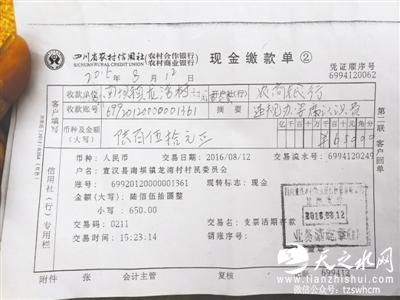 四川省农村信用社(农村合作银行)
RURAL CREDIT UNION (农村商业银行)
现金缴款单②
凭证顺序号
6994120062
2015年8月12日
收款单位
开户社(行)
农商银行
收款账号
699201200000001361
摘要
币种及金额
(大写)
陆佰伍拾元正
客户填写
第二联 客户回单
币种:人民币
交易日期:2016/08/12
交易流水号:6994120249
户名:宣汉县南坝镇龙湾村村民委员会
账号:699201200000001361
现转标志:现金
金额(大写):陆佰伍拾圆整
小写:650.00
交易码:0211
交易名称:支票活期存款
时间:15:23:14
销账序号:
信用社(行)专用栏
2016.08.12
附件
张
会计主管
复核
699412
天之水网
www.tianzhishui.com
微信公众号:tzswhcm